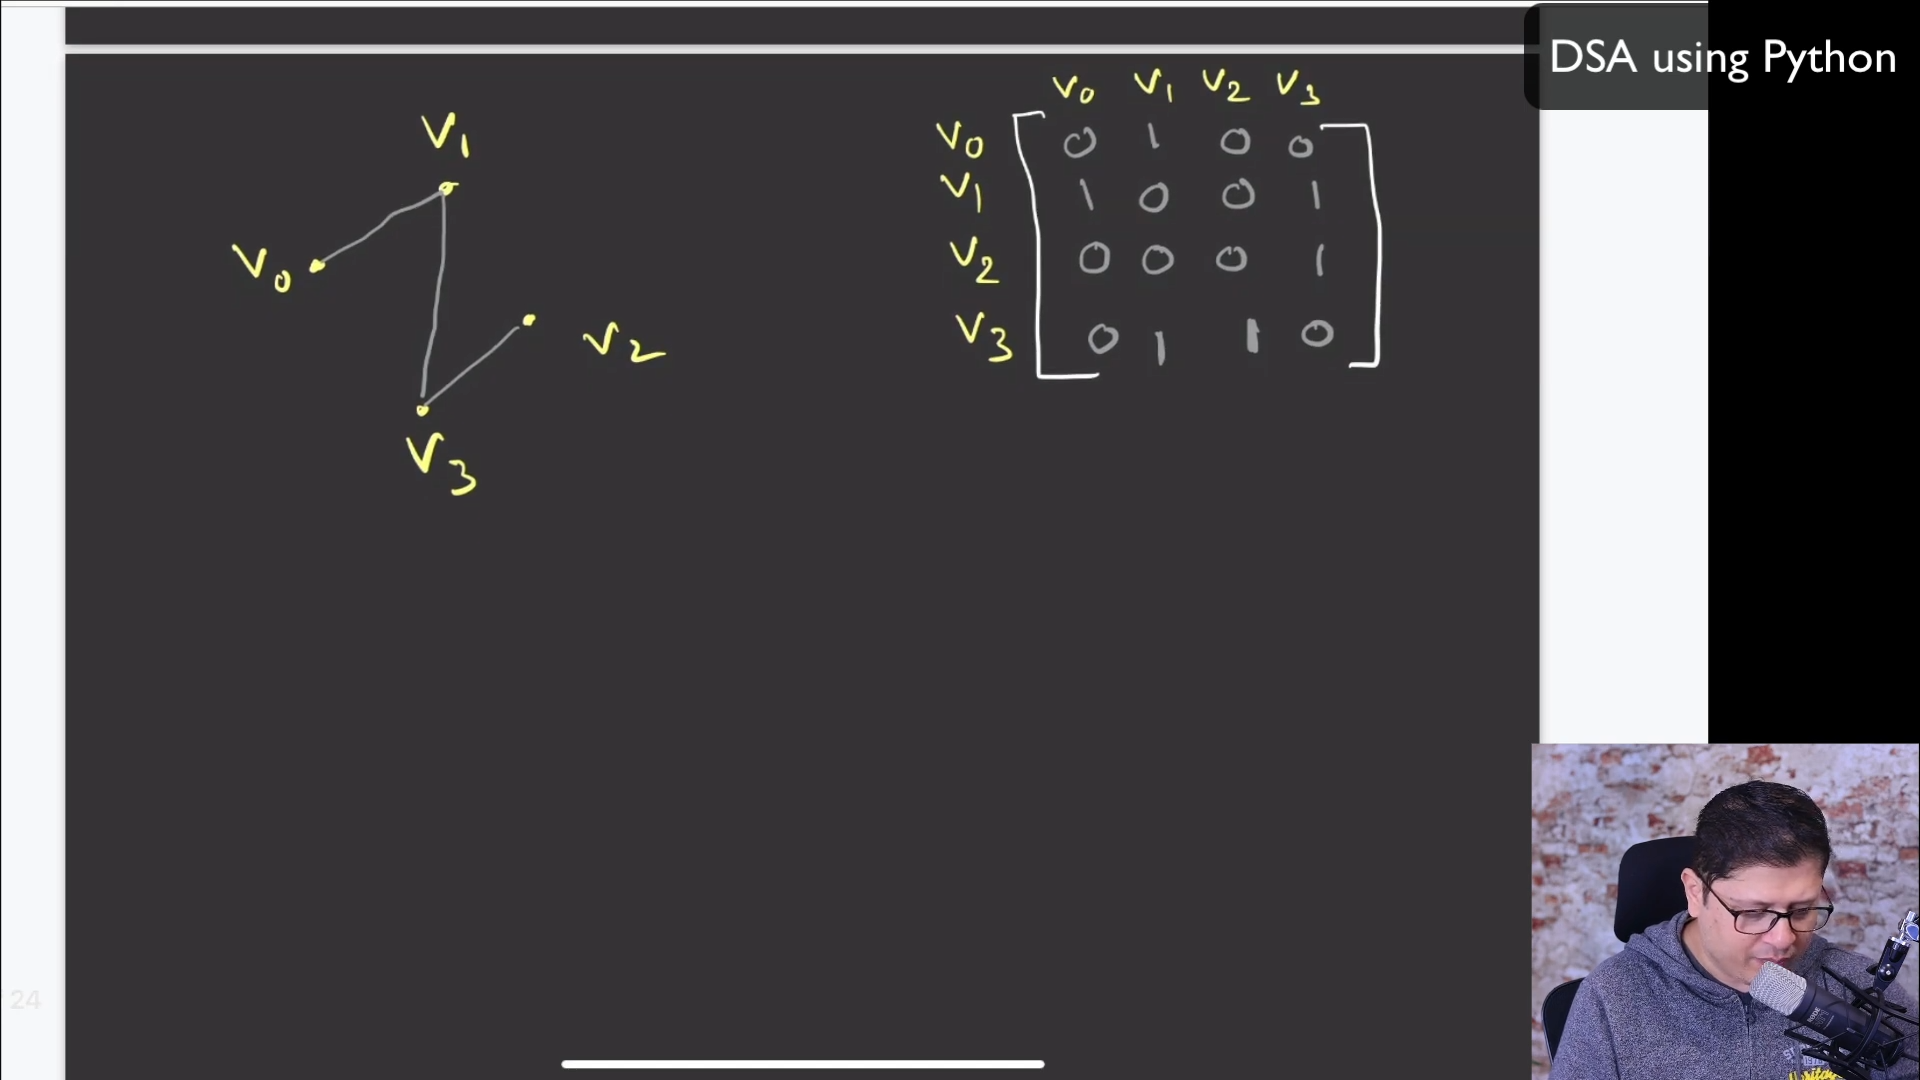 DSA using Python
V1
V0
V2
V3
V0 V1 V2 V3
V0 0 1 0 0
V1 1 0 0 1
V2 0 0 0 1
V3 0 1 1 0
24